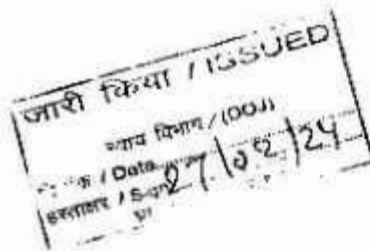 जारी किया / ISSUED
न्याय विभाग / (DOJ)
/ Date 27/02/24
हस्ताक्षर /